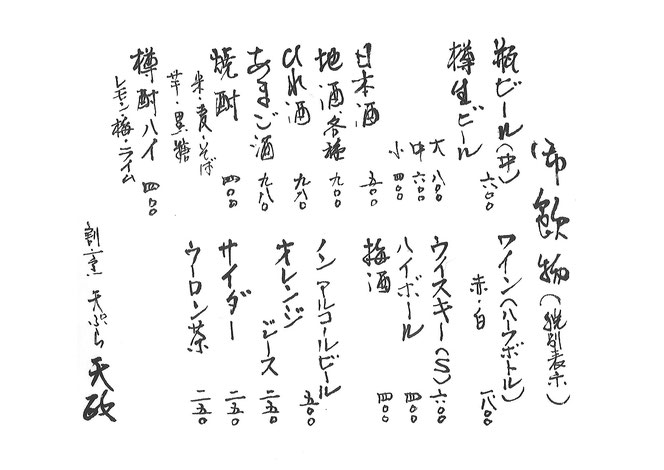 御飲物(税別表示)
瓶ビール(中) 六〇〇
樽生ビール
大 八〇〇
中 六〇〇
小 四〇〇
日本酒 五〇〇
地酒各種 九〇〇
ひれ酒 九八〇
あまご酒 九八〇
焼酎 四〇〇
米・麦・そば
芋・黒糖
樽酎ハイ 四〇〇
レモン・梅・ライム
ワイン(ハーフボトル) 一八〇〇
赤・白
ウイスキー(S) 六〇〇
ハイボール 四〇〇
梅酒 四〇〇
ノンアルコールビール 五〇〇
オレンジジュース 二五〇
サイダー 二五〇
ウーロン茶 二五〇
割烹 天ぷら 天政